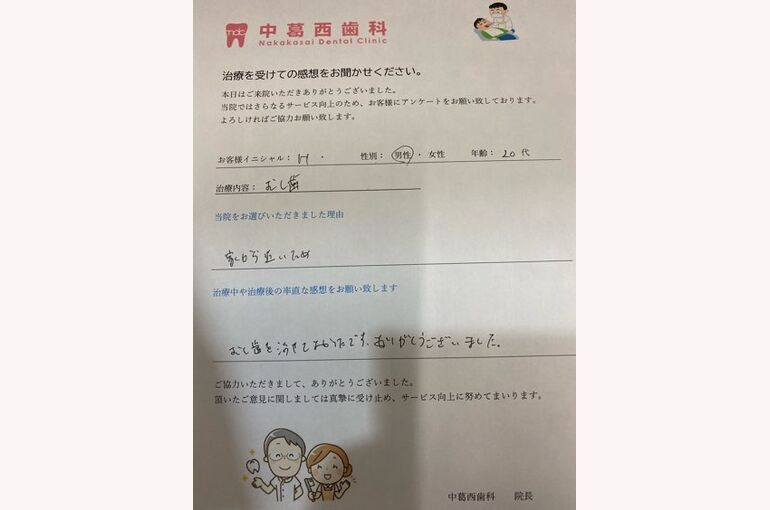 mdc 中葛西歯科
Nakakasai Dental Clinic
治療を受けての感想をお聞かせください。
本日はご来院いただきありがとうございました。
当院ではさらなるサービス向上のため、お客様にアンケートをお願い致しております。
よろしければご協力お願い致します。
お客様イニシャル： H ・ 性別： 男性 ・ 女性 年齢： 20 代
治療内容： むし歯
当院をお選びいただきました理由
家から近いため
治療中や治療後の率直な感想をお願い致します
むし歯を治せてよかったです。ありがとうございました。
ご協力いただきまして、ありがとうございました。
頂いたご意見に関しましては真摯に受け止め、サービス向上に努めてまいります。
中葛西歯科 院長